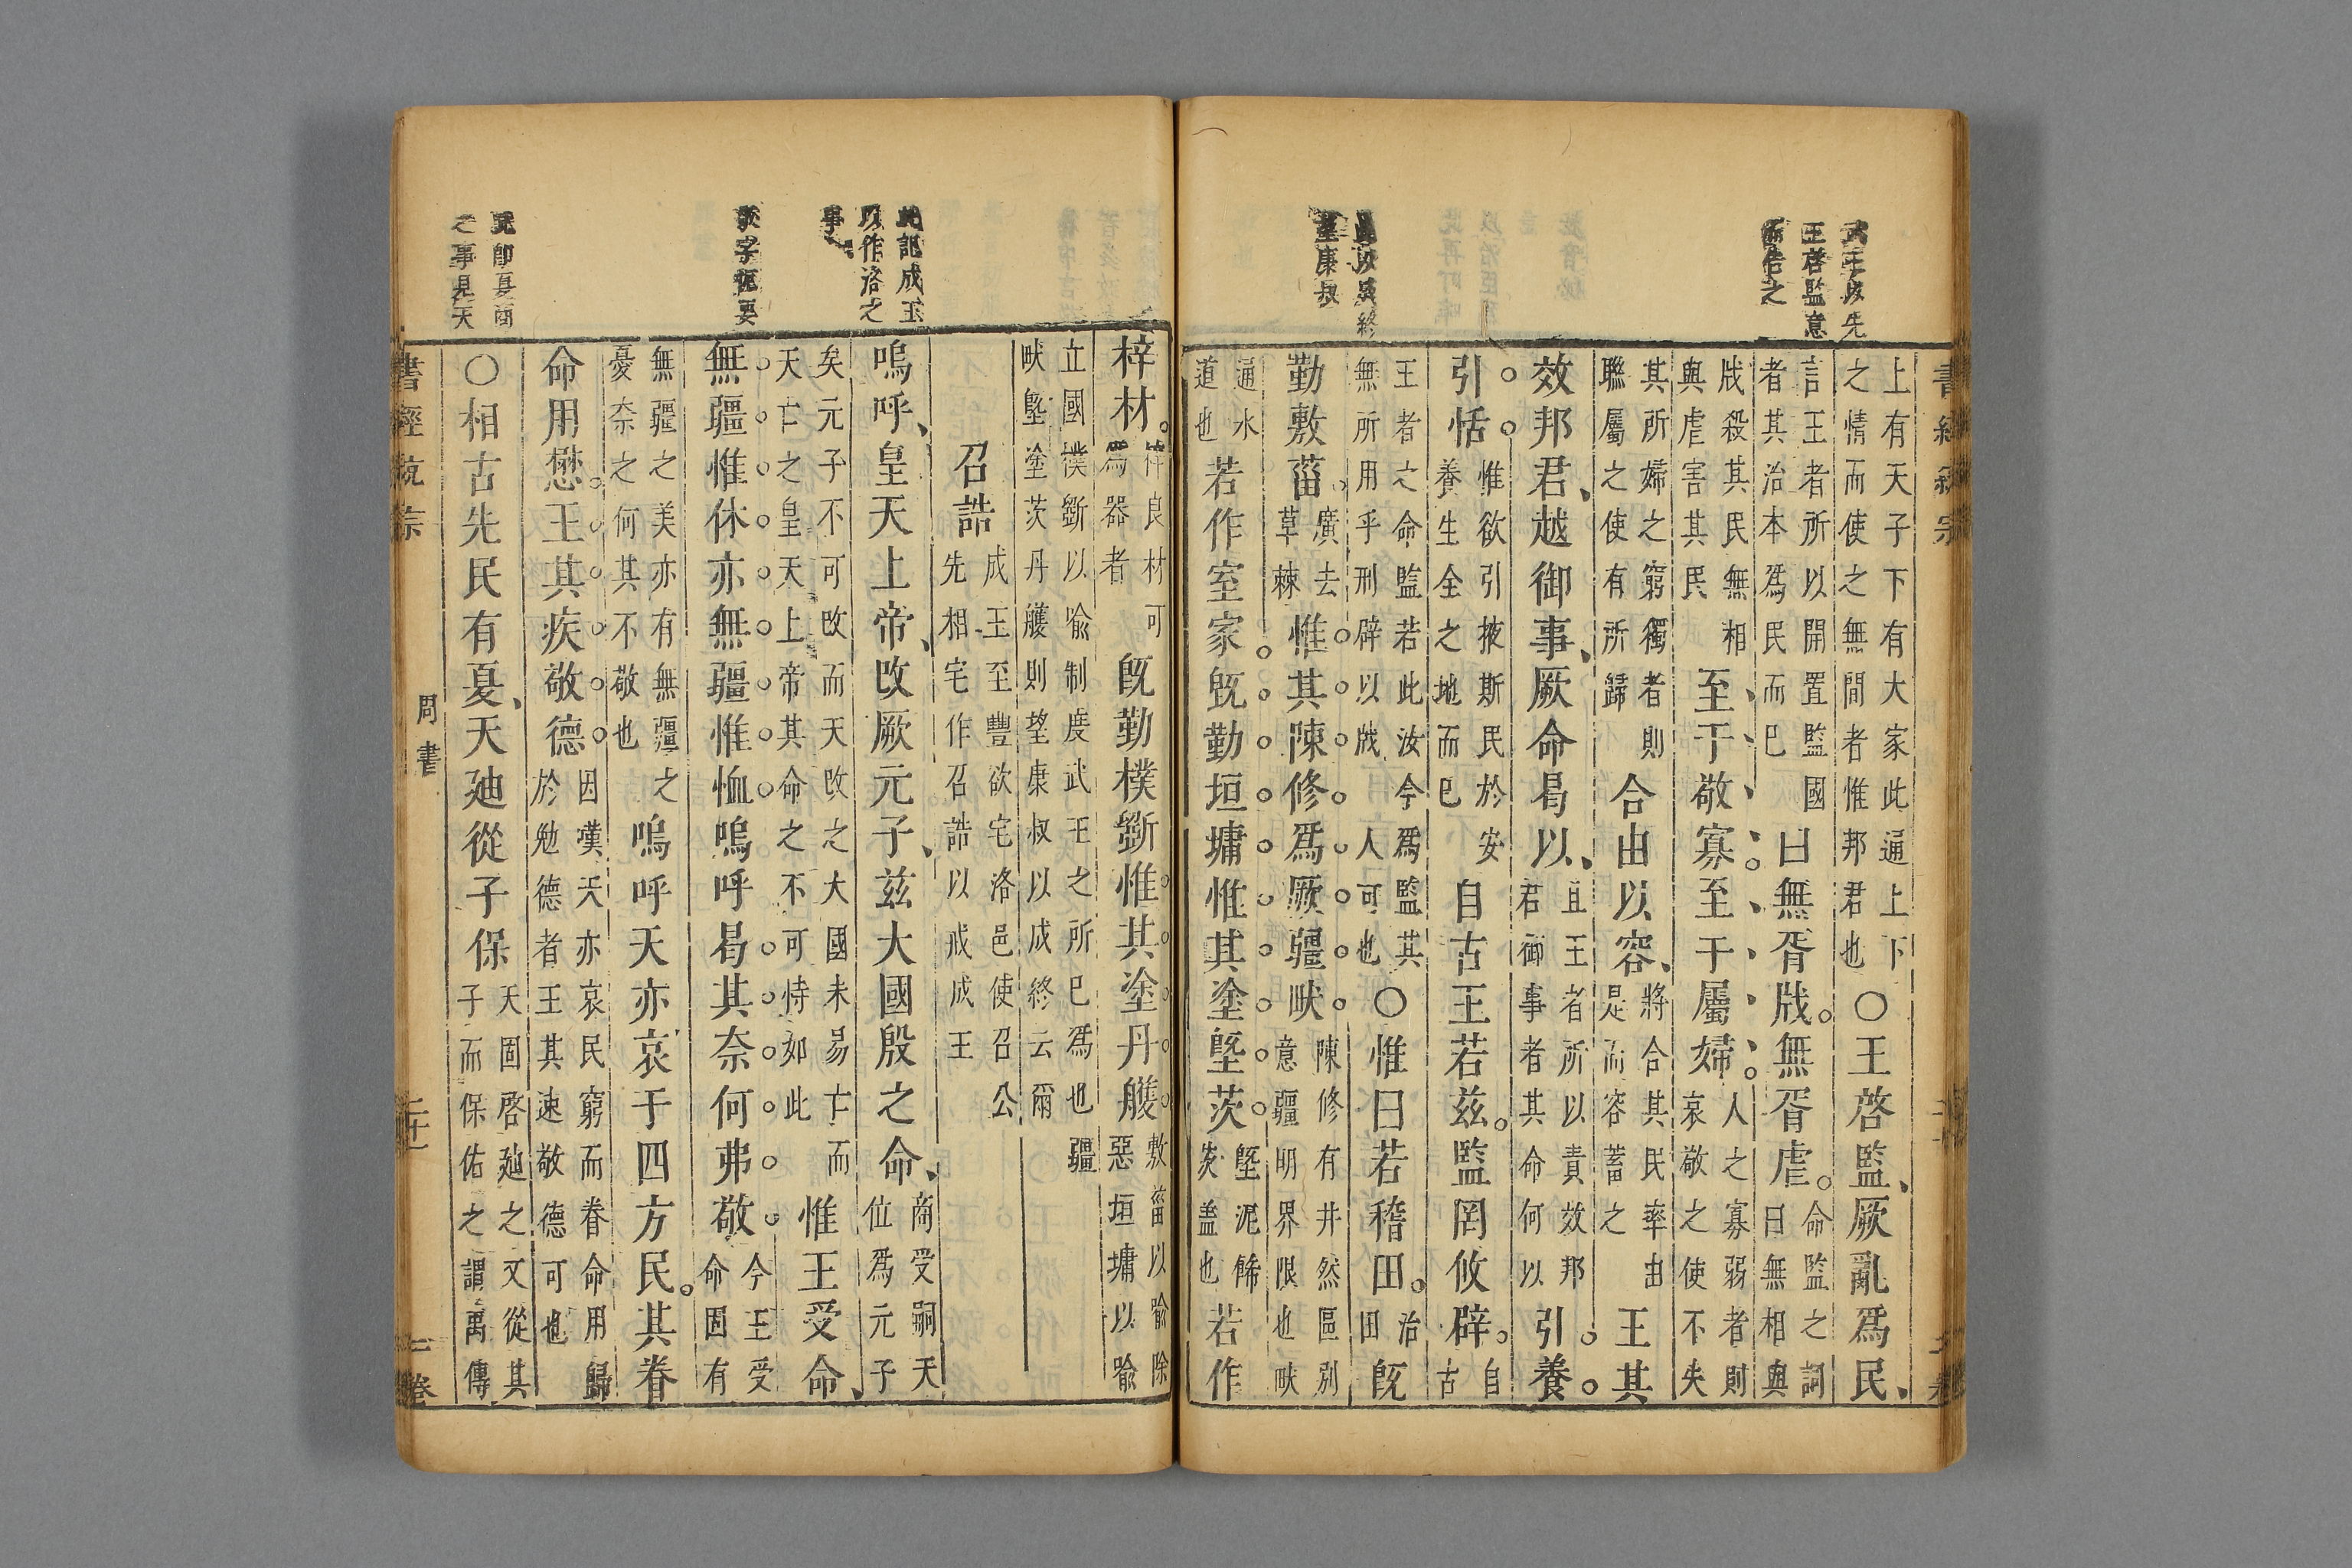 上有天子下有大家此通上下
之情而使之無間者惟邦君也
○王啓監厥亂爲民
言王者所以開置監國
者其治本爲民而已
曰無胥戕無胥虐
命監之詞
曰無相與
戕殺其民無相
與虐害其民
至于敬寡至于屬婦
人之寡弱者則
哀敬之使不失
其所婦之窮獨者則
聯屬之使有所歸
合由以容
將合其民率由
是而容蓄之
王其
效邦君越御事厥命曷以
且王者所以責效邦
君御事者其命何以
引養
引恬
惟欲引掖斯民於安
養生全之地而已
自古王若茲監罔攸辟
自
古
王者之命監若此汝今爲監其
無所用乎刑辟以戕人可也
○惟曰若稽田
治
田
既
勤敷菑
廣去
草棘
惟其陳修爲厥疆畎
陳修有井然區別
意疆明界限也畎
通水
道也
若作室家既勤垣墉惟其塗塈茨
塈泥飾
茨蓋也
若作
梓材
梓良材可
爲器者
既勤樸斵惟其塗丹雘
敷菑以喻除
惡垣墉以喻
立國樸斵以喻制度武王之所已爲也疆
畎塈塗茨丹雘則望康叔以成終云爾
召誥
成王至豐欲宅洛邑使召公
先相宅作召誥以戒成王
嗚呼皇天上帝改厥元子茲大國殷之命
商受嗣天
位爲元子
矣元子不可改而天改之大國未易亡而
天亡之皇天上帝其命之不可恃如此
惟王受命
無疆惟休亦無疆惟恤嗚呼曷其奈何弗敬
今王受
命固有
無疆之美亦有無疆之
憂奈之何其不敬也
嗚呼天亦哀于四方民其眷
命用懋王其疾敬德
因嘆天亦哀民窮而眷命用歸
於勉德者王其速敬德可也
○相古先民有夏天迪從子保
天固啓迪之又從其
子而保佑之謂禹傳
周書
武王以先
王啓監意
而告之
望康叔
此記成王
以作洛之
事
敬字極要
民卽夏商
之事見天